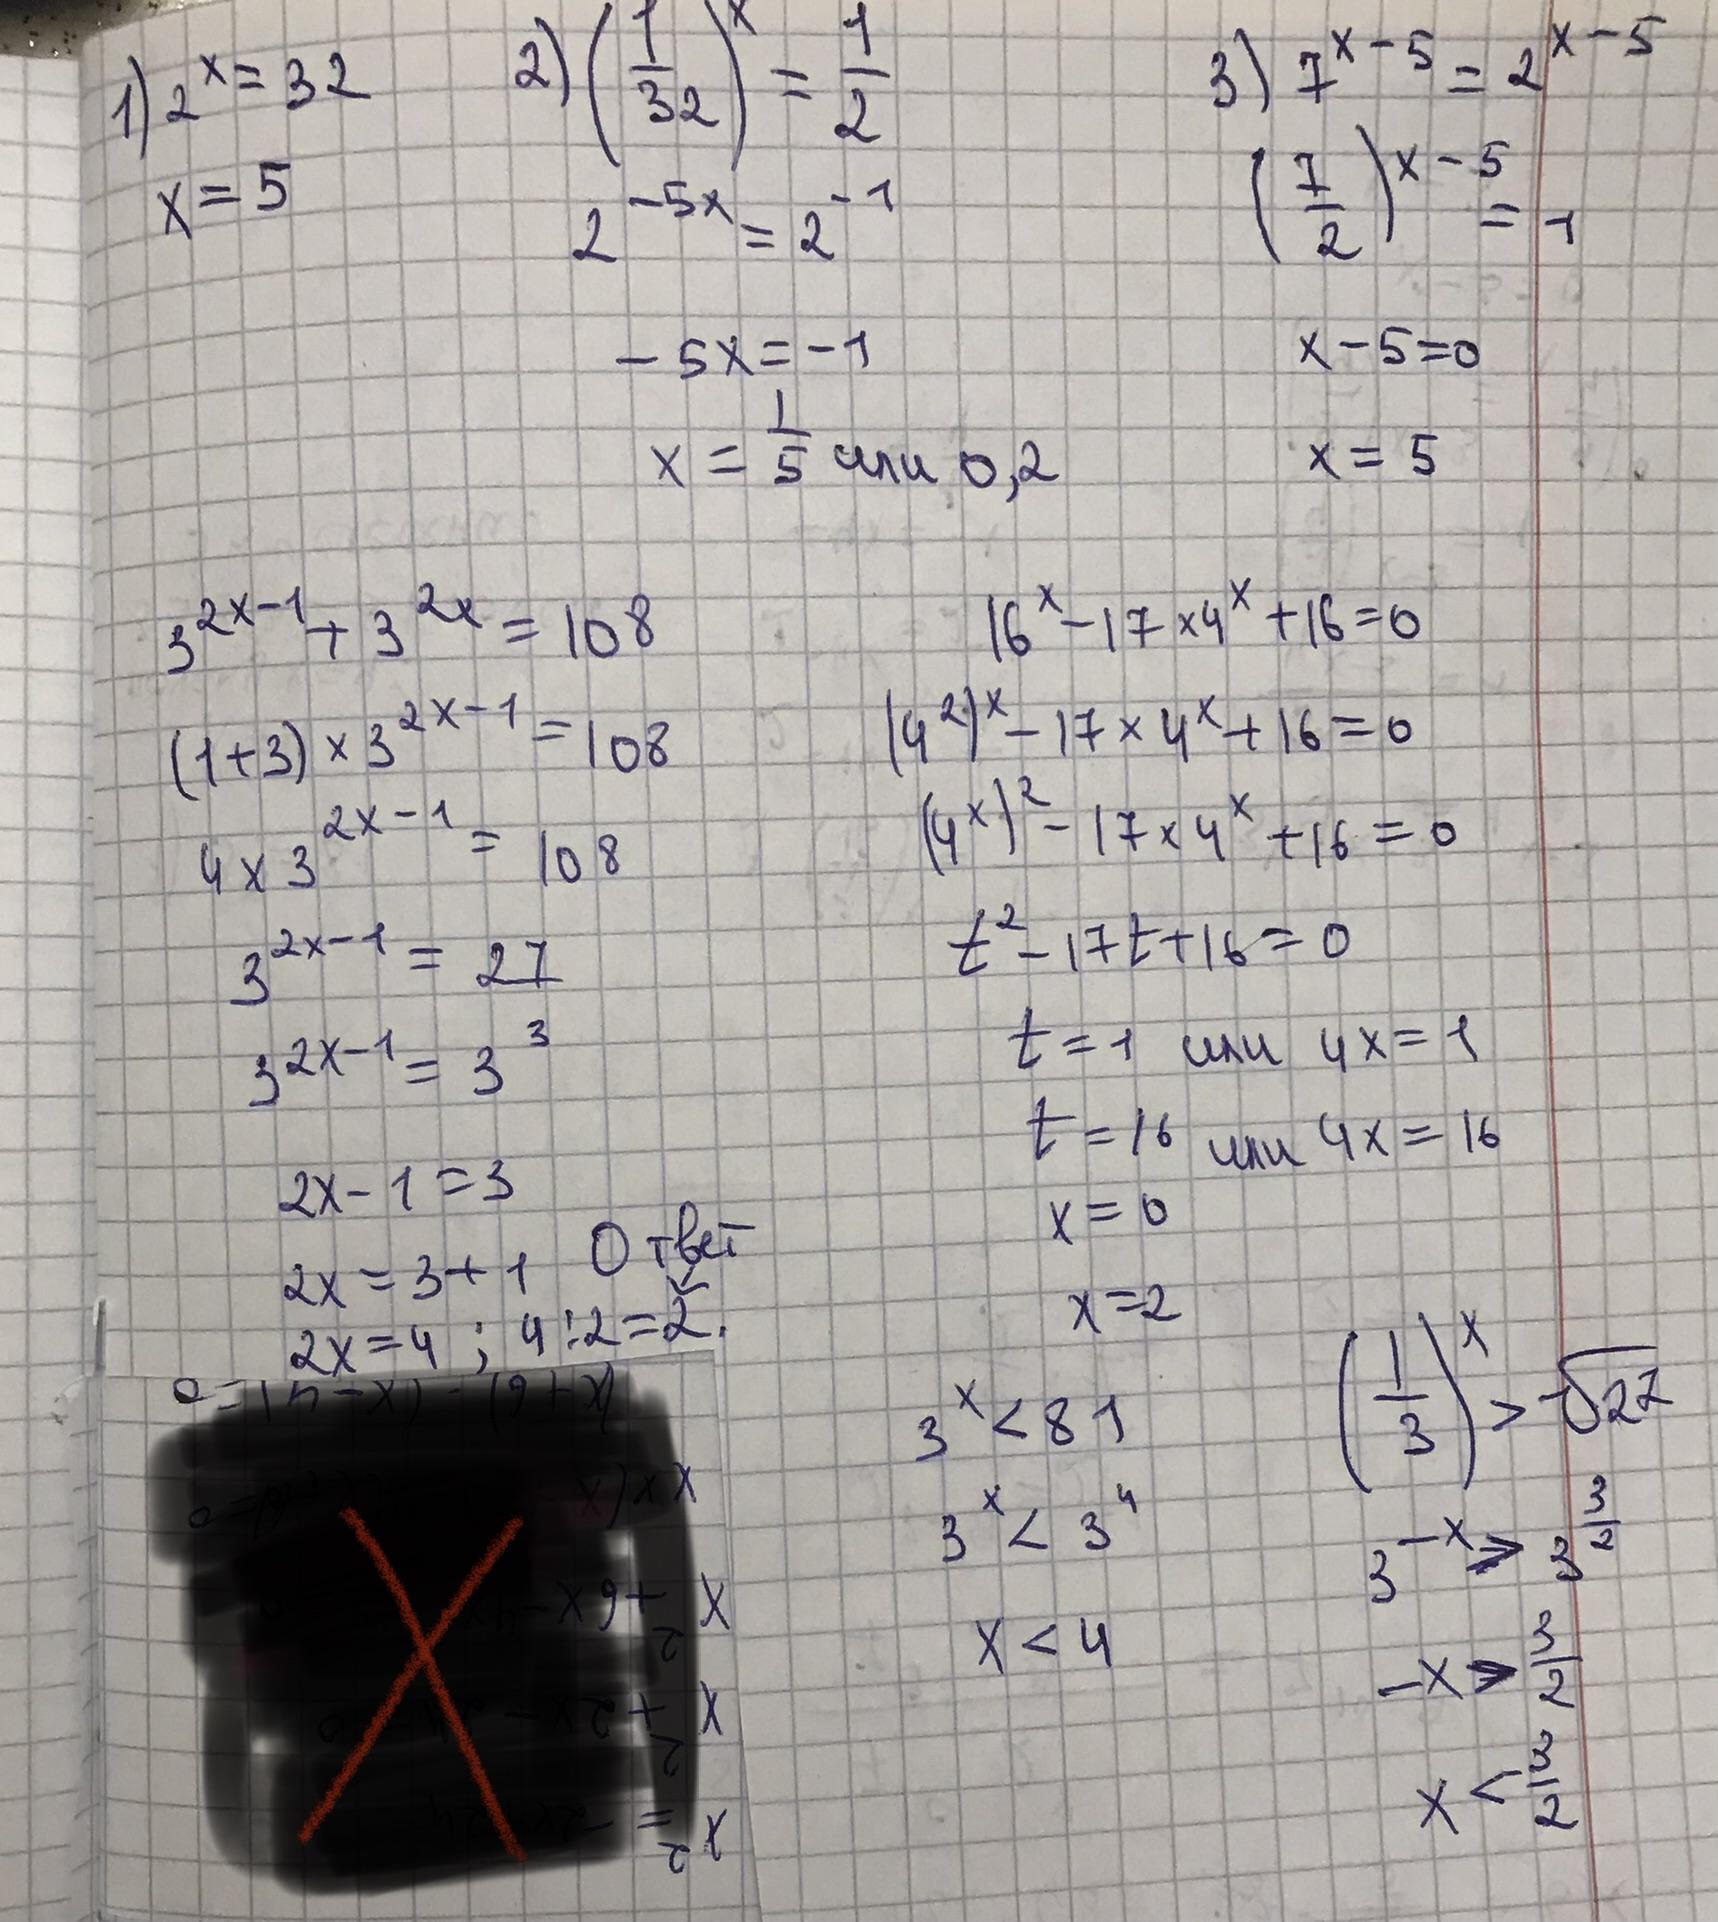 1) 2^x = 32
x = 5
2) (1/32)^x = 1/2
2^(-5x) = 2^(-1)
-5x = -1
x = 1/5 или 0,2
3) 7^(x-5) = 2^(x-5)
(7/2)^(x-5) = 1
x-5=0
x = 5
3^(2x-1) + 3^(2x) = 108
(1+3) × 3^(2x-1) = 108
4 × 3^(2x-1) = 108
3^(2x-1) = 27
3^(2x-1) = 3^3
2x-1 = 3
2x = 3+1
Ответ
2x = 4 ; 4:2=2.
16^x - 17 × 4^x + 16 = 0
(4^2)^x - 17 × 4^x + 16 = 0
(4^x)^2 - 17 × 4^x + 16 = 0
t^2 - 17t + 16 = 0
t = 1 или 4x = 1
t = 16 или 4x = 16
x = 0
x = 2
3^x < 81
3^x < 3^4
x < 4
(1/3)^x > √27
3^(-x) > 3^(3/2)
-x > 3/2
x < -3/2